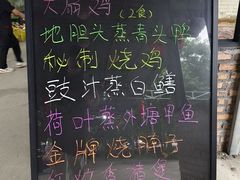 大扇鸡
(2食)
地胆头蒸番头鸭
秘制烧鸡
豉汁蒸白鳝
荷叶蒸外塘甲鱼
金牌烧